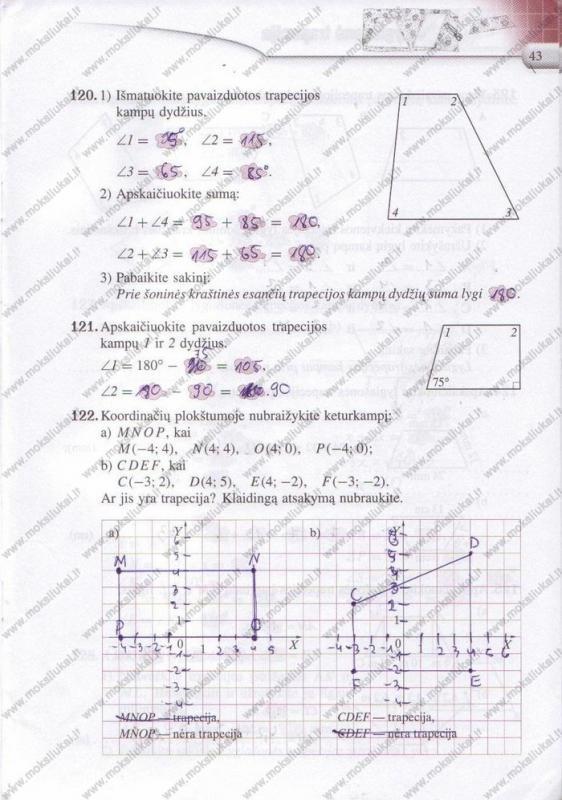 43
120. 1) Išmatuokite pavaizduotos trapecijos
kampų dydžius.
∠1 = 95°, ∠2 = 115,
∠3 = 65, ∠4 = 85°.
2) Apskaičiuokite sumą:
∠1 + ∠4 = 95 + 85 = 180,
∠2 + ∠3 = 115 + 65 = 180.
3) Pabaikite sakinį:
Prie šoninės kraštinės esančių trapecijos kampų dydžių suma lygi 180.
1 2
4 3
121. Apskaičiuokite pavaizduotos trapecijos
kampų 1 ir 2 dydžius.
75
∠1 = 180° − = 105,
∠2 = 190 − 90 = .90
1 2
75°
122. Koordinačių plokštumoje nubraižykite keturkampį:
a) MNOP, kai
M(−4; 4), N(4; 4), O(4; 0), P(−4; 0);
b) CDEF, kai
C(−3; 2), D(4; 5), E(4; −2), F(−3; −2).
Ar jis yra trapecija? Klaidingą atsakymą nubraukite.
a) Y b) Y
M N D
C
P O X X
-4 -3 -2 -1 0 1 2 3 4 5 6 -4 -3 -2 -1 0 1 2 3 4 5 6
F E
MNOP — trapecija, CDEF — trapecija,
MNOP — nėra trapecija CDEF — nėra trapecija
www.mokaliukai.lt